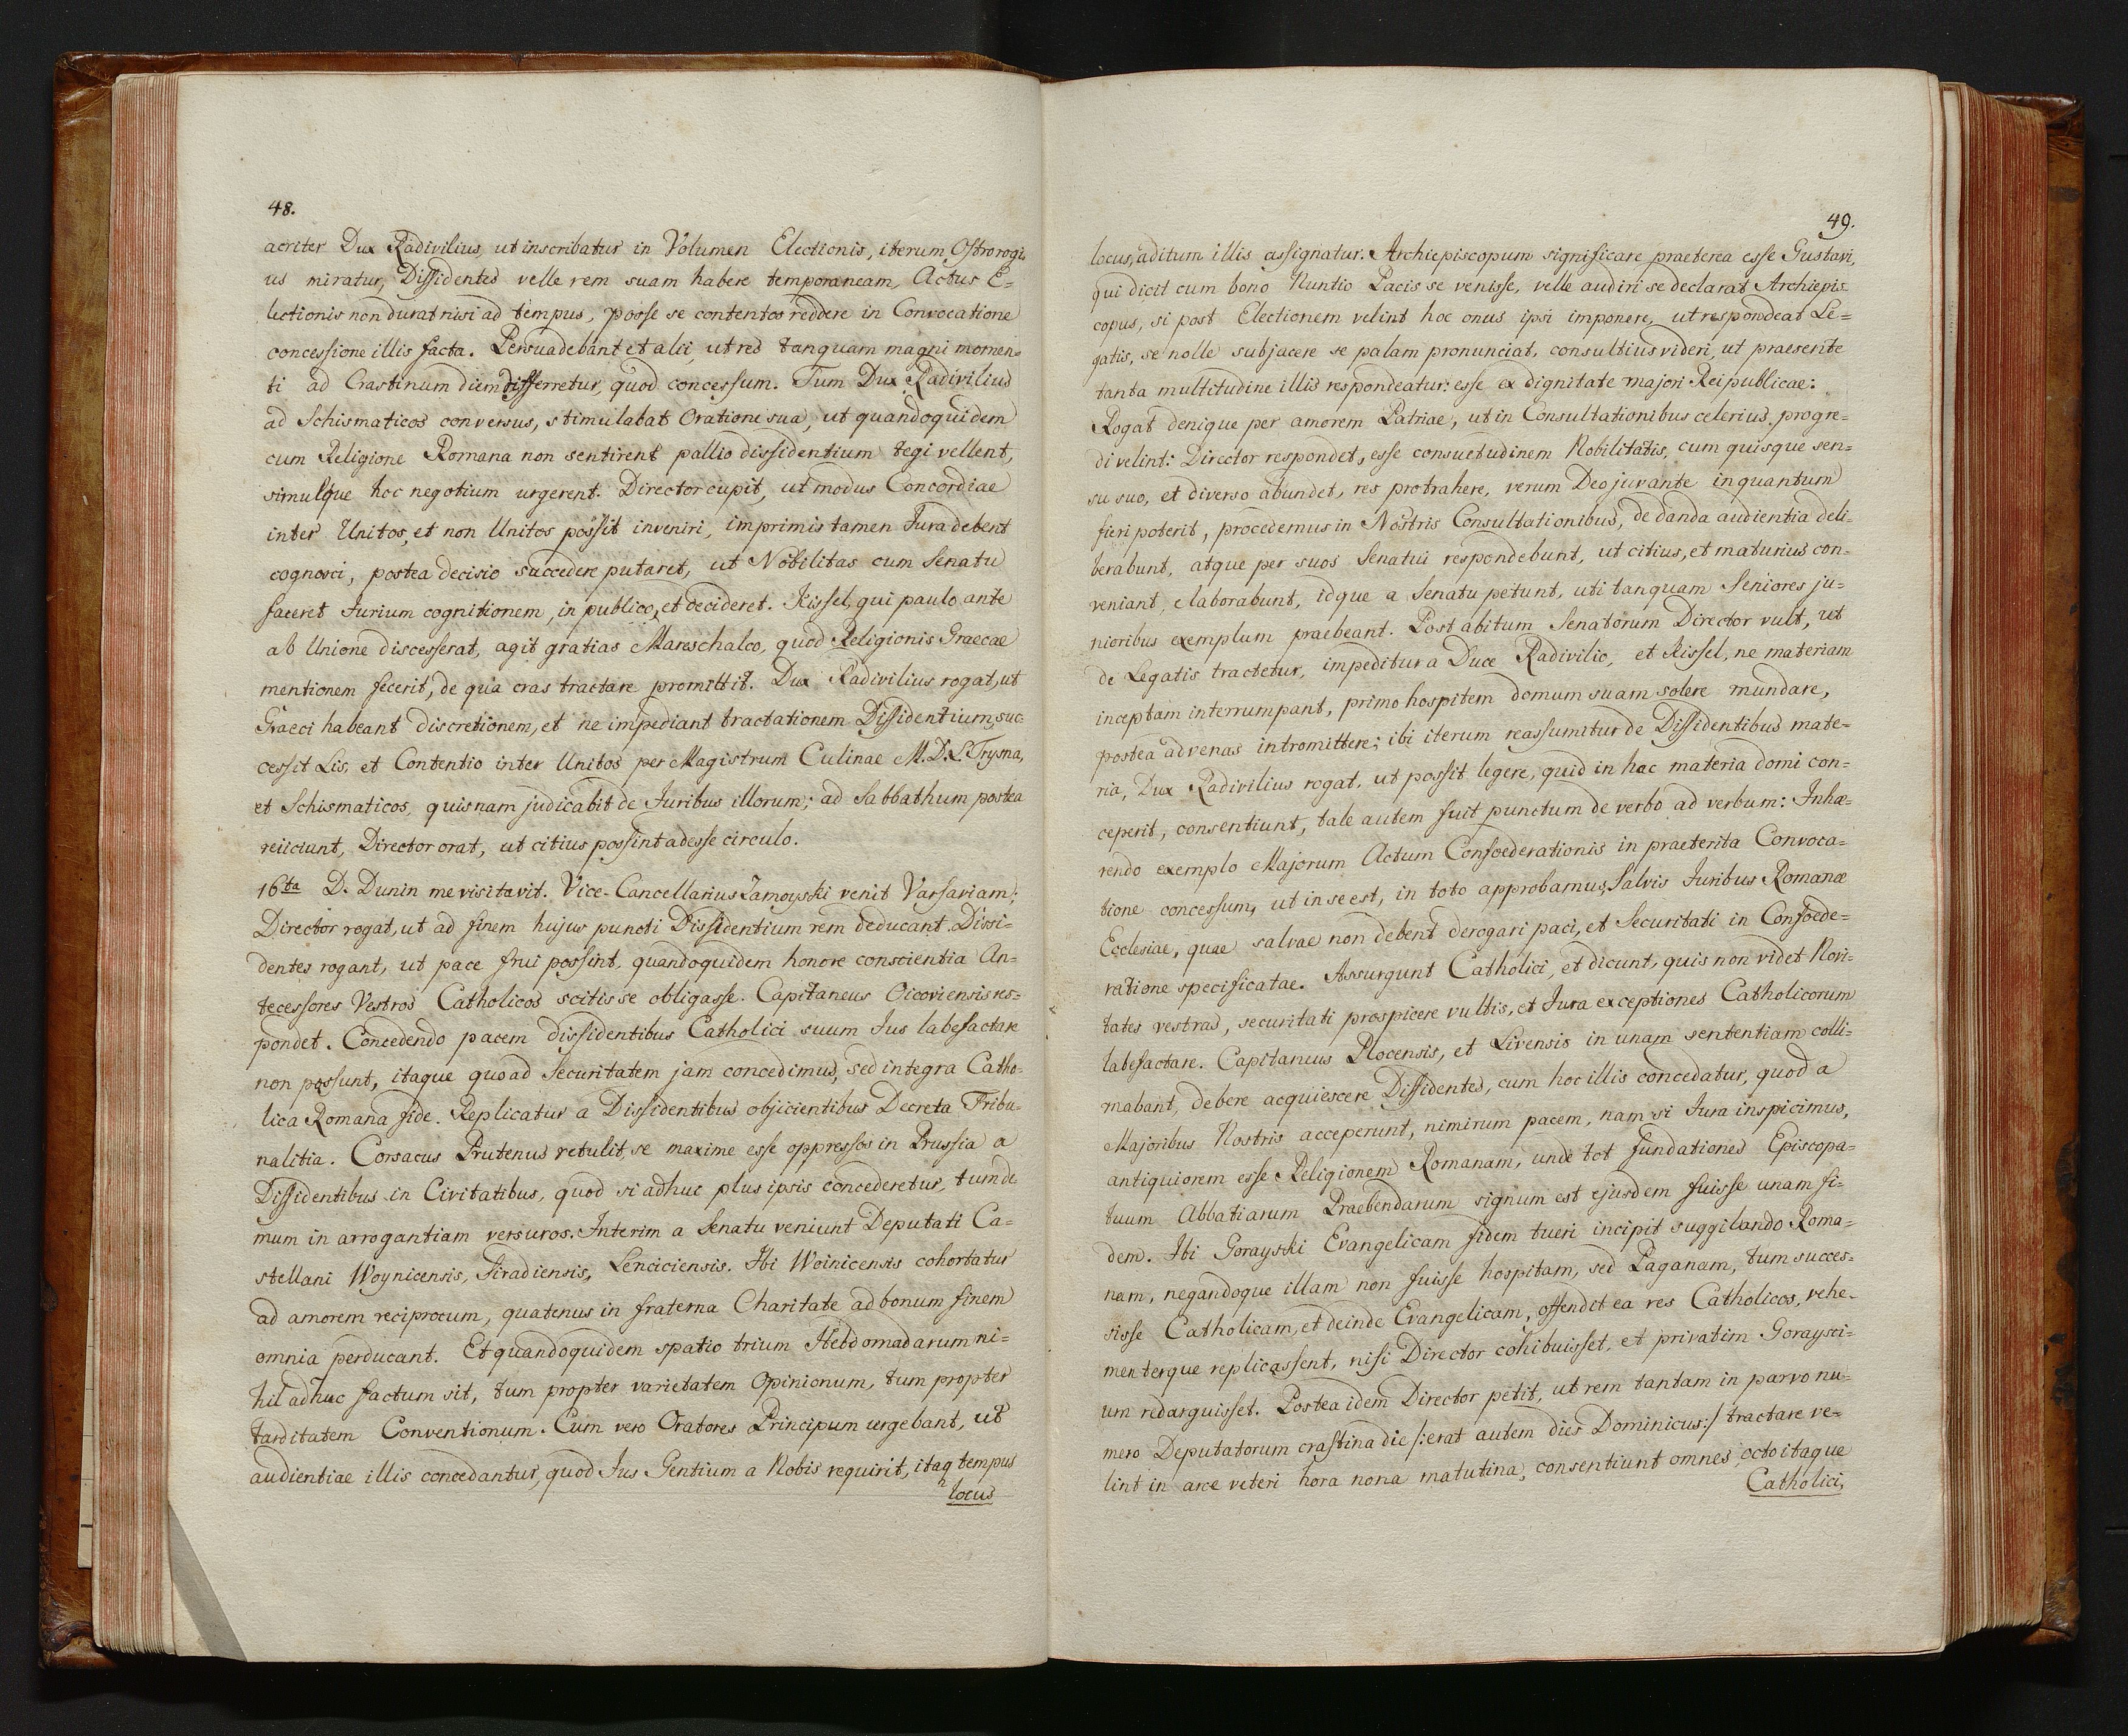 48.
acriter Dux Radivilius, ut inscribatur in Volumen Electionis, iterum Ostrorogi,
us miratur, Dissidentes velle rem suam habere temporaneam, Actus E=
lectionis non durat nisi ad tempus, posse se contentos reddere in Convocatione
concessione illis facta. Persuadebant et alii, ut res tanquam magni momen=
ti ad Crastinum diem differretur, quod concessum. Tum Dux Radivilius
ad Schismaticos conversus, stimulabat Oratione sua, ut quandoquidem
cum Religione Romana non sentirent pallio dissidentium tegi vellent,
simulque hoc negotium urgerent. Director cupit, ut modus Concordiae
inter Unitos, et non Unitos possit inveniri, imprimis tamen Jura debent
cognosci, postea decisio succedere putaret, ut Nobilitas cum Senatu
faceret Jurium cognitionem, in publico, et decideret. Kissel, qui paulo ante
ab Unione discesserat, agit gratias Mareschalco, quod Religionis Graecae
mentionem fecerit, de qua cras tractare promittit. Dux Radivilius rogat, ut
Graeci habeant discretionem, et ne impediant tractationem Dissidentium, suc=
cessit Lis, et Contentio inter Unitos per Magistrum Culinae M.D.L. Trysna,
et Schismaticos, quisnam judicabit de Juribus illorum; ad Sabbathum postea
reiiciunt, Director orat, ut citius possint adesse circulo.
16ta D. Dunin me visitavit. Vice-Cancellarius Zamoyski venit Varsaviam;
Director rogat, ut ad finem hujus puncti Dissidentium rem deducant. Dissi=
dentes rogant, ut pace frui possint, quandoquidem honore conscientia An=
tecessores Vestros Catholicos scitis se obligasse. Capitaneus Oicoviensis res=
pondet. Concedendo pacem dissidentibus Catholici suum Jus labefactare
non possunt, itaque quoad Securitatem jam concedimus, sed integra Catho=
lica Romana fide. Replicatur a Dissidentibus objicientibus Decreta Tribu=
nalitia. Corsacus Prutenus retulit, se maxime esse oppressos in Prussia a
Dissidentibus in Civitatibus, quod si adhuc plus ipsis concederetur, tum de
mum in arrogantiam versuros. Interim a Senatu veniunt Deputati Ca=
stellani Woynicensis, Siradiensis, Lenciciensis. Ibi Woinicensis cohortatur
ad amorem reciprocum, quatenus in fraterna Charitate ad bonum finem
omnia perducant. Et quandoquidem spatio trium Hebdomadarum ni=
hil adhuc factum sit, tum propter varietatem Opinionum, tum propter
tarditatem Conventionum. Cum vero Oratores Principum urgebant, ut
audientiae illis concedantur, quod Jus Gentium a Nobis requirit, itaq tempus
locus
49.
locus, aditum illis assignatur. Archiepiscopum significare praeterea esse Gustavi,
qui dicit cum bono Nuntio Pacis se venisse, velle audiri se declarat Archiepis
copus, si post Electionem velint hoc onus ipsi imponere, ut respondeat Le=
gatis, se nolle subjacere se palam pronunciat, consultius videri, ut praesente
tanta multitudine illis respondeatur: esse ex dignitate majori Reipublicae:
Rogat denique per amorem Patriae, ut in Consultationibus celerius progre=
di velint: Director respondet, esse consuetudinem Nobilitatis, cum quisque sen=
su suo, et diverso abundet, res protrahere, verum Deo juvante inquantum
fieri poterit, procedemus in Nostris Consultationibus, de danda audientia deli=
berabunt, atque per suos Senatui respondebunt, ut citius, et maturius con=
veniant, elaborabunt, idque a Senatu petunt, uti tanquam Seniores ju=
nioribus exemplum praebeant. Post abitum Senatorum Director vult, ut
de Legatis tractetur, impeditur a Duce Radivilio, et Kissel, ne materiam
inceptam interrumpant, primo hospitem domum suam solere mundare,
postea advenas intromittere; ibi iterum reassumitur de Dissidentibus mate=
ria, Dux Radivilius rogat, ut possit legere, quid in hac materia domi con=
ceperit, consentiunt, tale autem fuit punctum de verbo ad verbum: Inhæ=
rendo exemplo Majorum Actum Confoederationis in praeterita Convoca=
tione concessum, ut in se est, in toto approbamus, Salvis Juribus Romanæ
Ecclesiae, quae salvae non debent derogari paci, et Securitati in Confoede=
ratione specificatae. Assurgunt Catholici, et dicunt, quis non videt Novi=
tates vestras, securitati prospicere vultis, et Jura exceptiones Catholicorum
labefactare. Capitaneus Plocensis, et Livensis in unam sententiam colli=
mabant, debere acquiescere Dissidentes, cum hoc illis concedatur, quod a
Majoribus Nostris acceperunt, nimirum pacem, nam si Jura inspicimus,
antiquiorem esse Religionem Romanam, unde tot fundationes Episcopa=
tuum Abbatiarum Praebendarum signum est ejusdem fuisse unam fi=
dem. Ibi Gorayski Evangelicam fidem tueri incipit suggilando Roma=
nam, negandoque illam non fuisse hospitam, sed Paganam, tum succes=
sisse Catholicam, et deinde Evangelicam, offendit ea res Catholicos, vehe=
menterque replicassent, nisi Director cohibuisset, et privatim Goraysci=
um redarguisset. Postea idem Director petit, ut rem tantam in parvo nu=
mero Deputatorum crastina die /:erat autem dies Dominicus:/ tractare ve=
lint in arce veteri hora nona matutina, consentiunt omnes, octo itaque
Catholici,